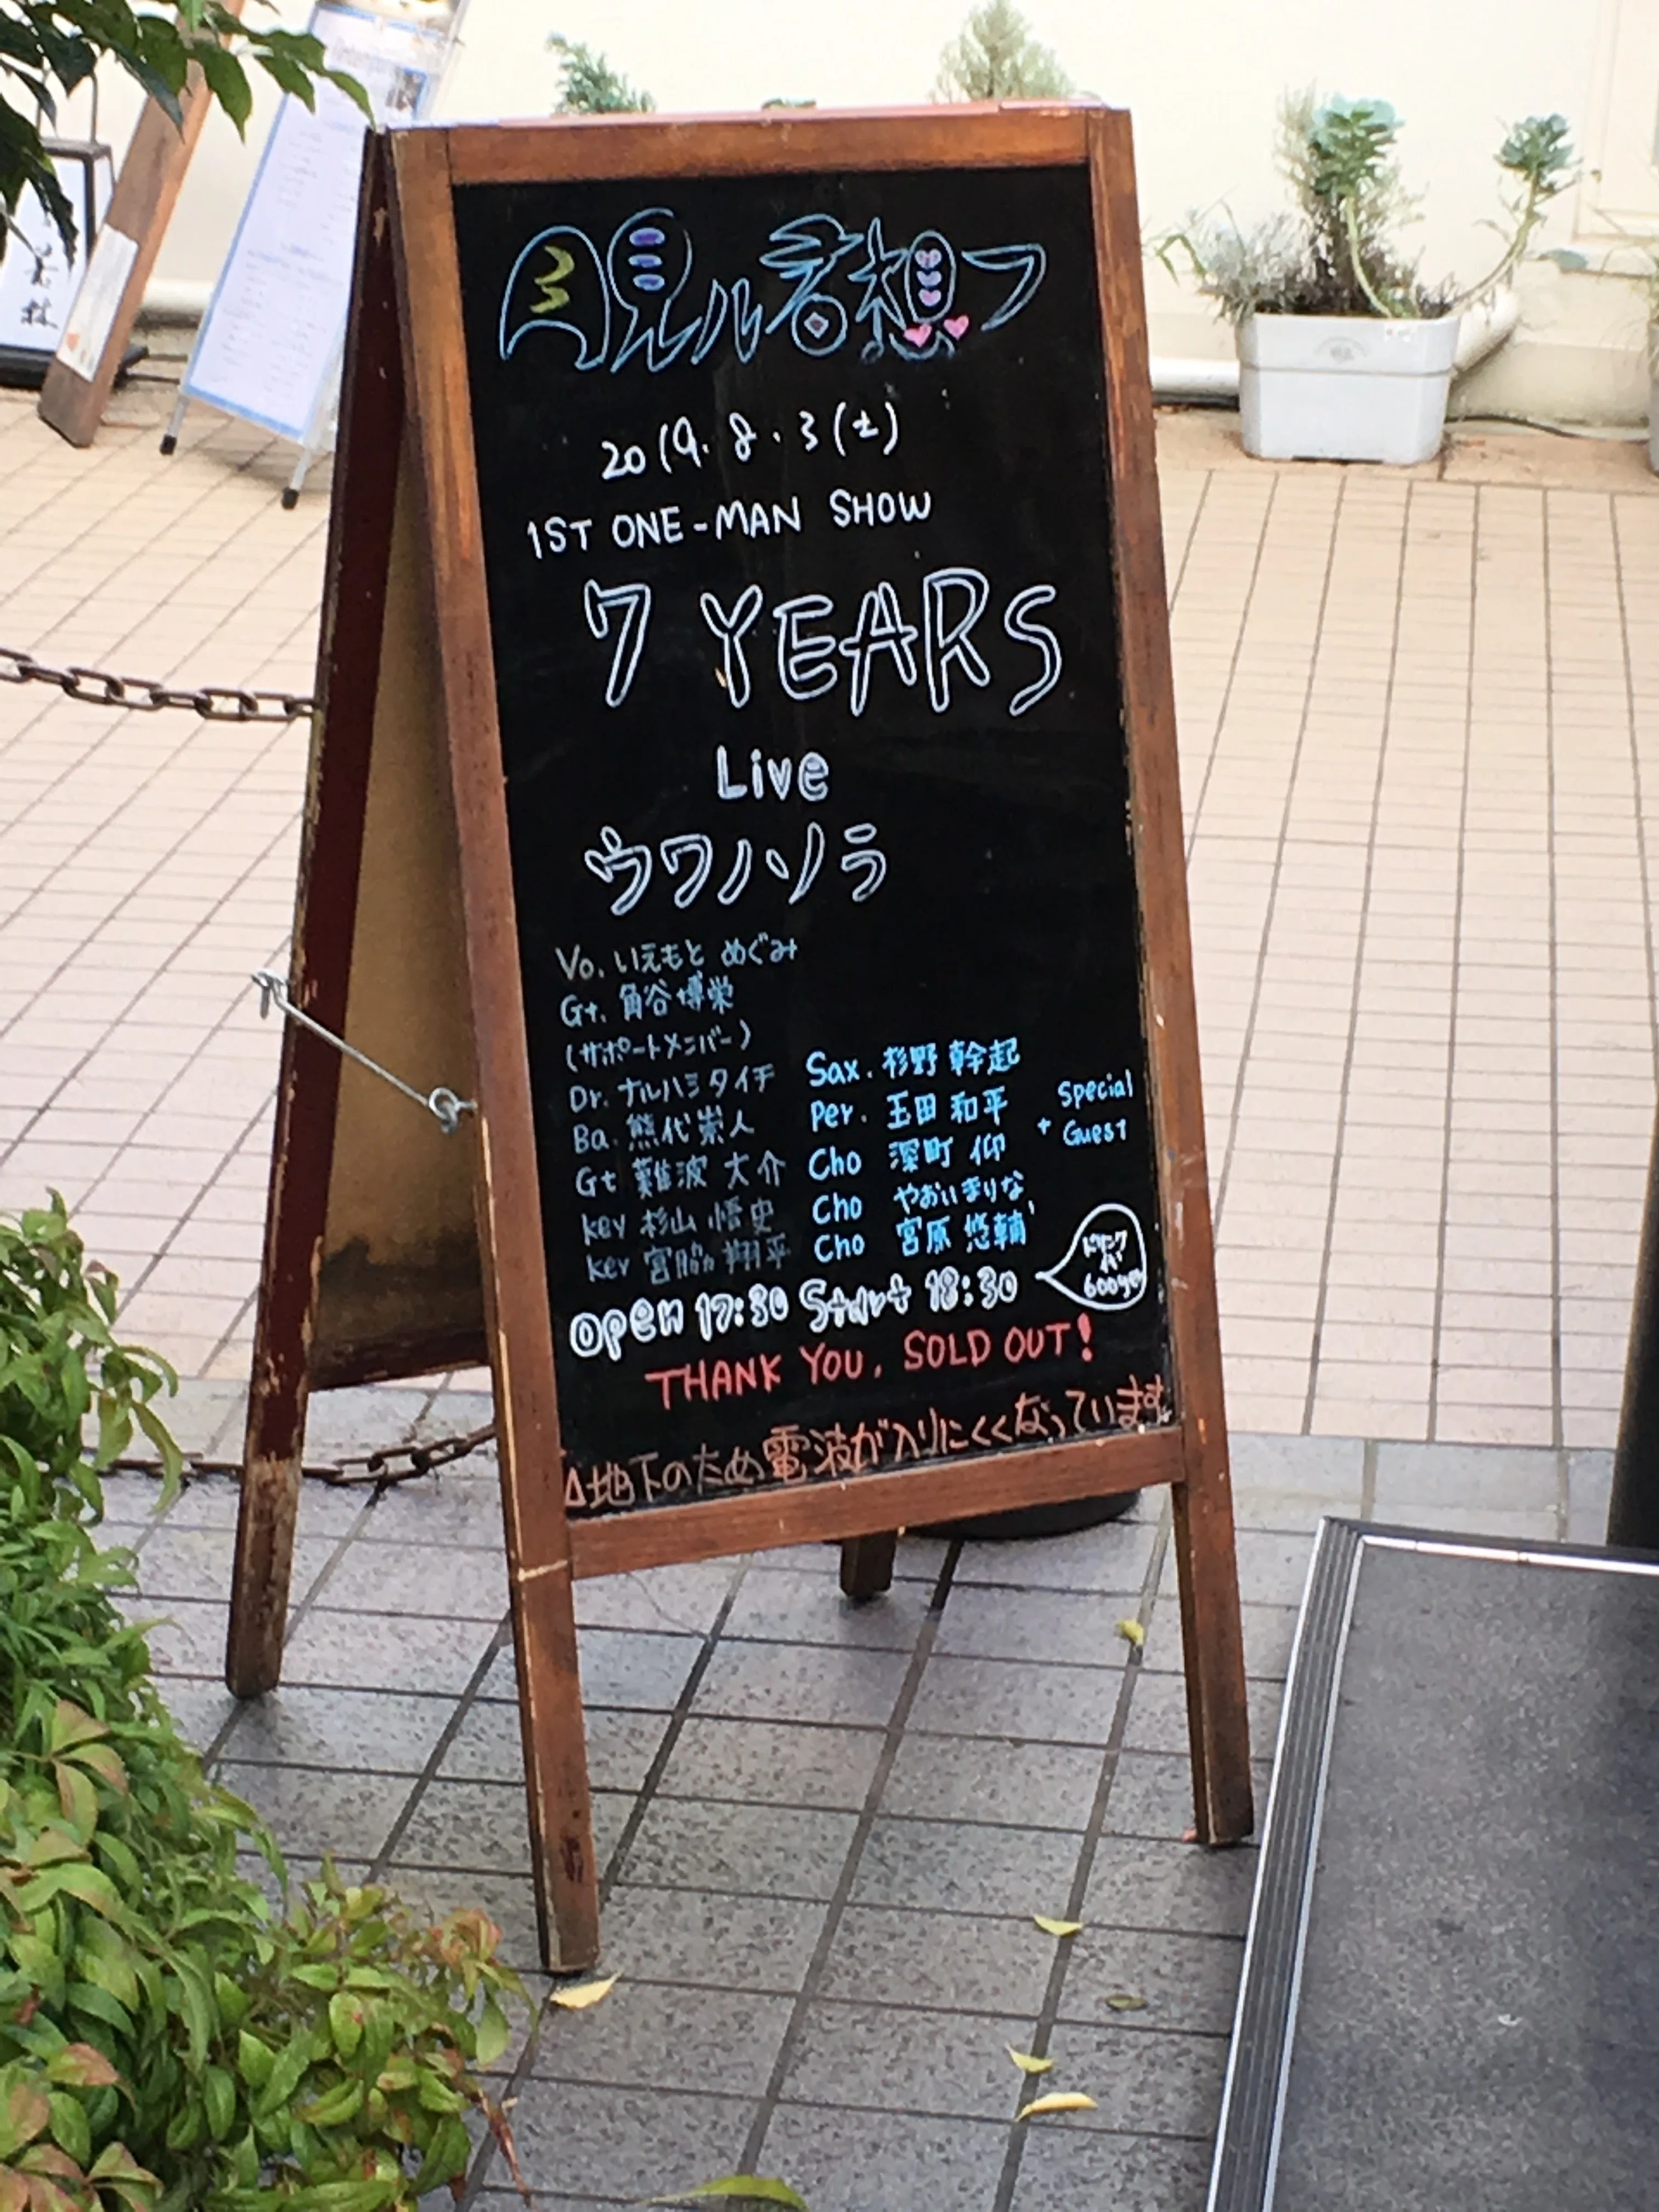 月見ル君想フ
2019.8.3(土)
1ST ONE-MAN SHOW
7 YEARS
Live
ウワノソラ
Vo. いえもと めぐみ
Gt. 角谷博栄
(サポートメンバー)
Dr. ナルハシタイチ
Ba. 熊代崇人
Gt 難波 大介
key 杉山 悟史
key 宮脇 翔平
Sax. 杉野 幹起
Per. 玉田 和平
Cho 深町 仰
Cho やおいまりな
Cho 宮原 悠輔
+ Special
Guest
open 17:30 Start 18:30
ドリンク
代
600yen
THANK YOU, SOLD OUT!
△地下のため電波が入りにくくなっています